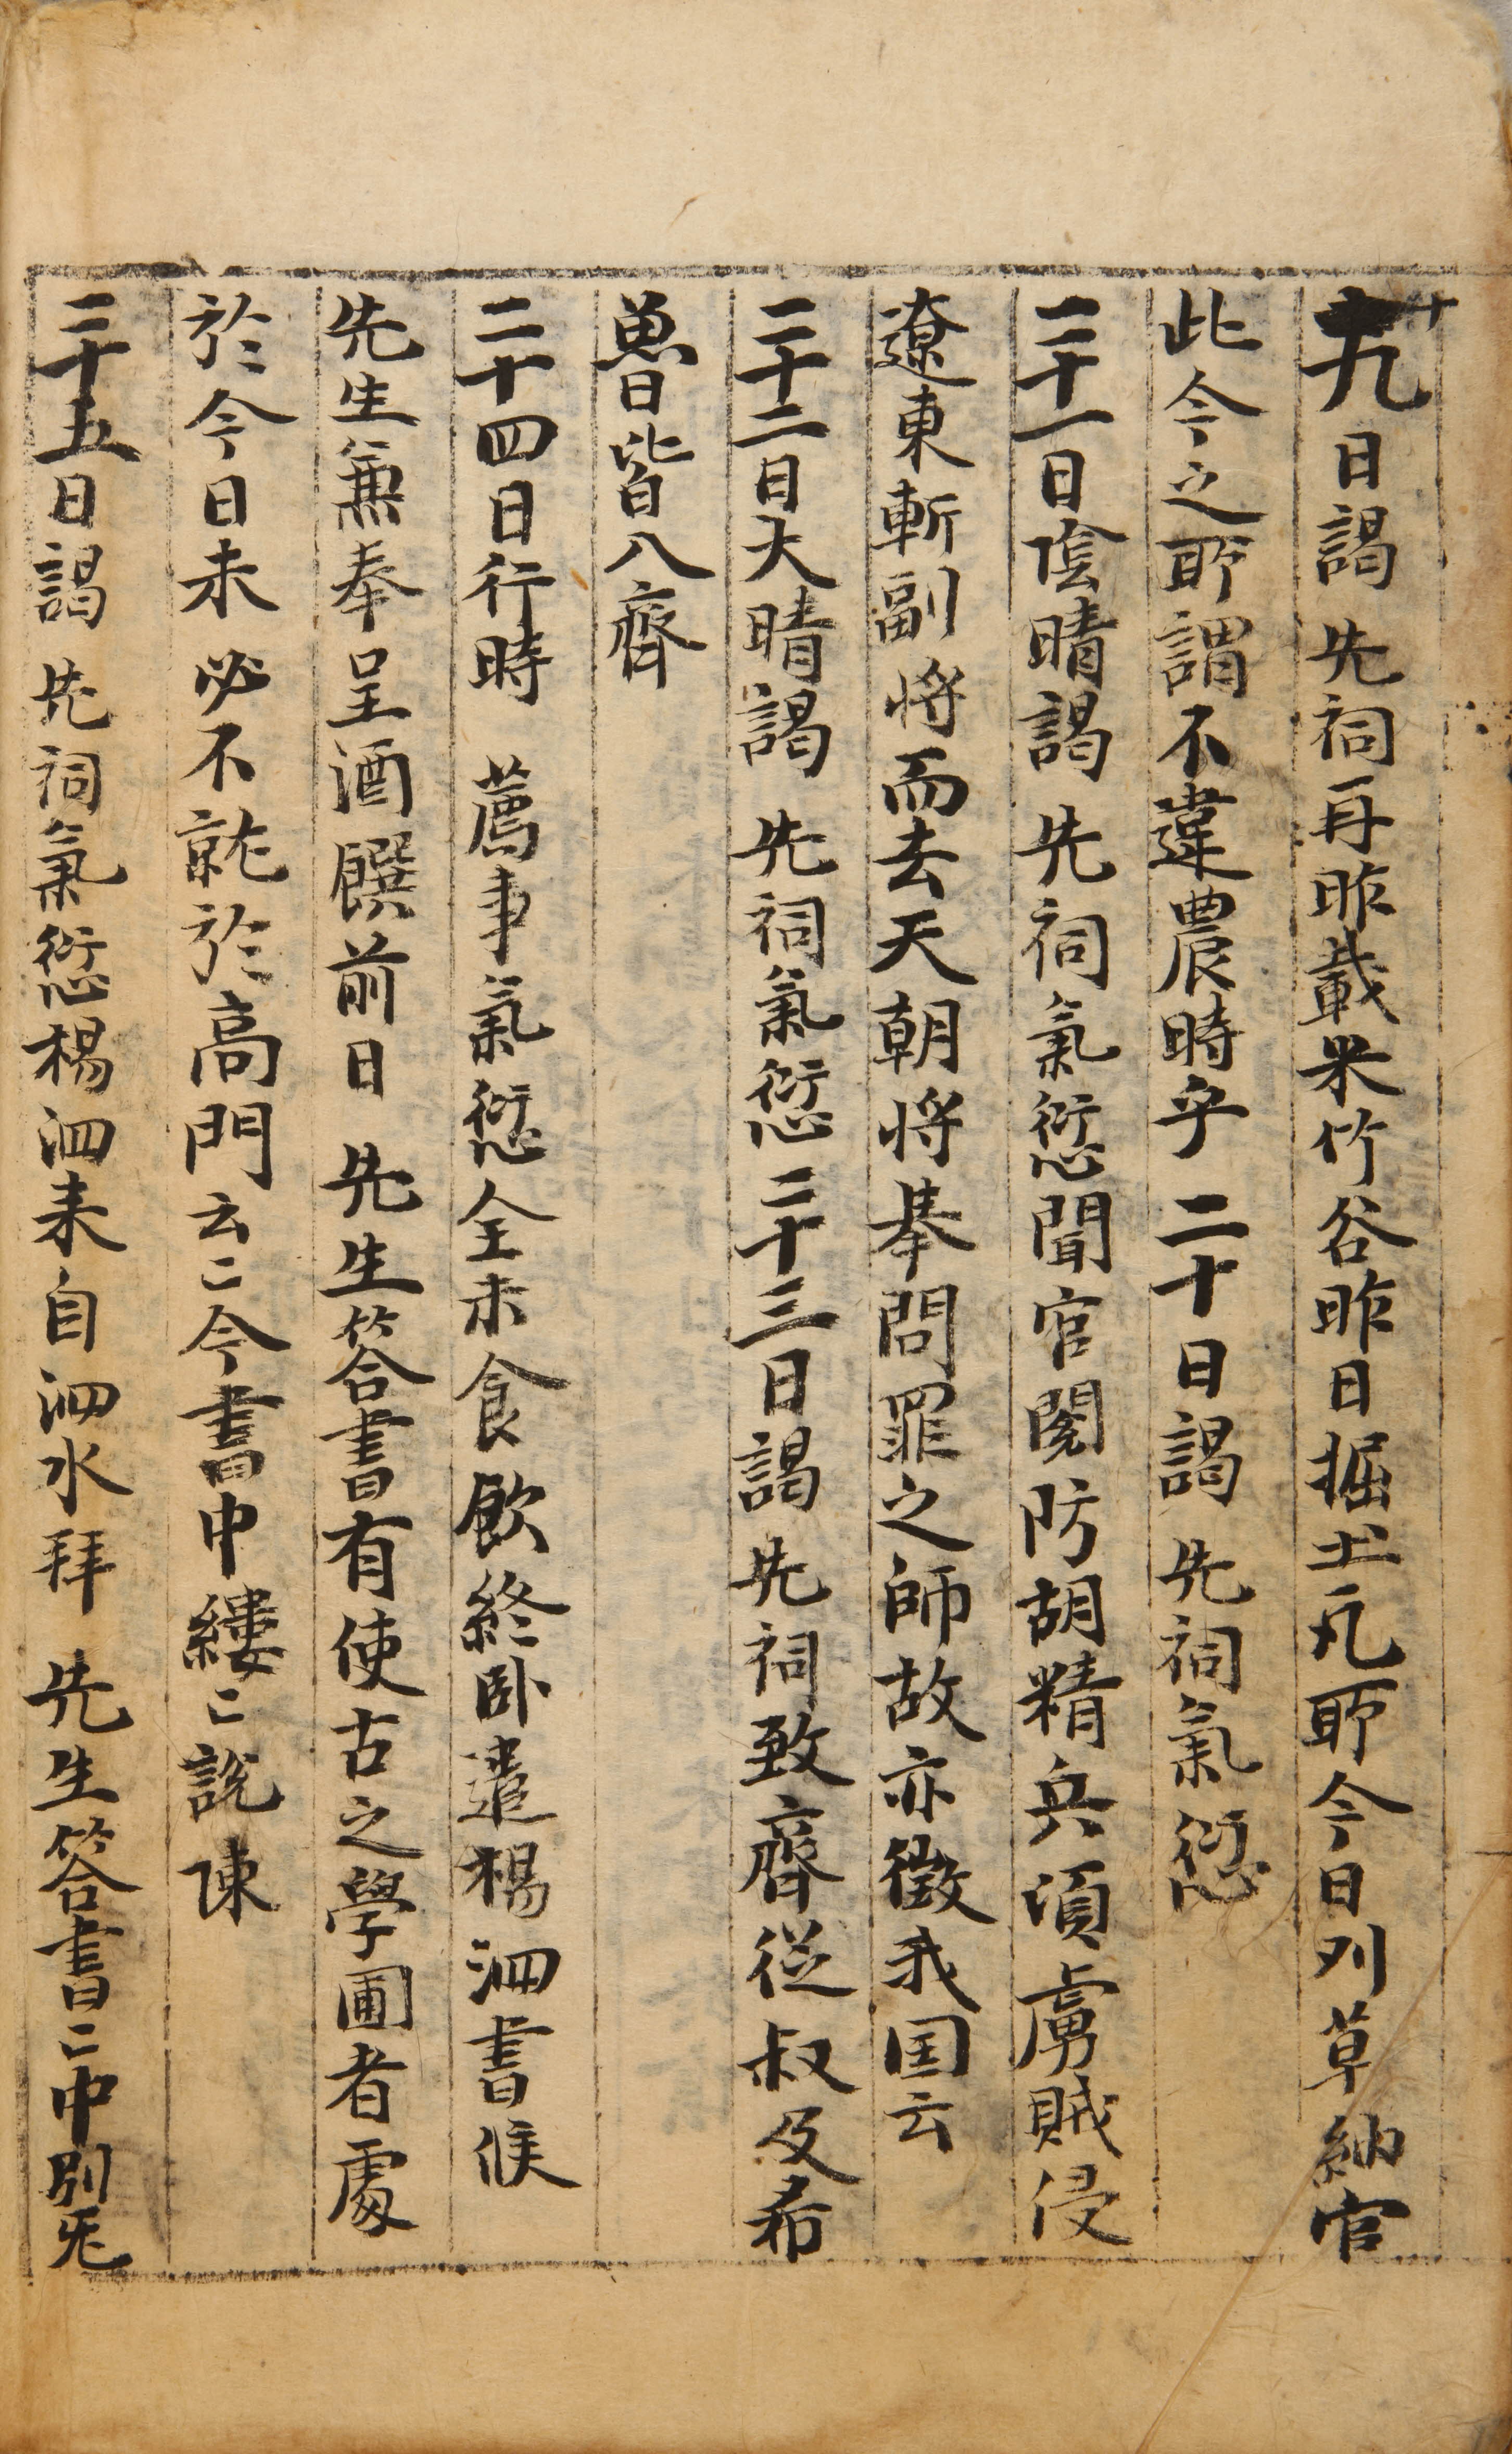 十九日謁 先祠再昨載米竹谷昨日掘土瓦耶今日刈草納官
此今之所謂不違農時乎 二十日謁 先祠氣愆
二十一日陰晴謁 先祠氣愆聞官閣防胡精兵須虜賊侵
遼東斬副将而去天朝将擧問罪之師故亦徵我国云
二十二日大晴謁 先祠氣愆 二十三日謁 先祠致齊從叔及希
魯日皆入齊
二十四日行時 薦事氣愆全未食飮終卧遣楊泗書候
先生兼奉呈酒饌前日 先生答書有使古之學圃者處
於今日未必不就於高門云〻今書中縷〻說陳
二十五日謁 先祠氣愆楊泗来自泗水拜 先生答書〻中別旡